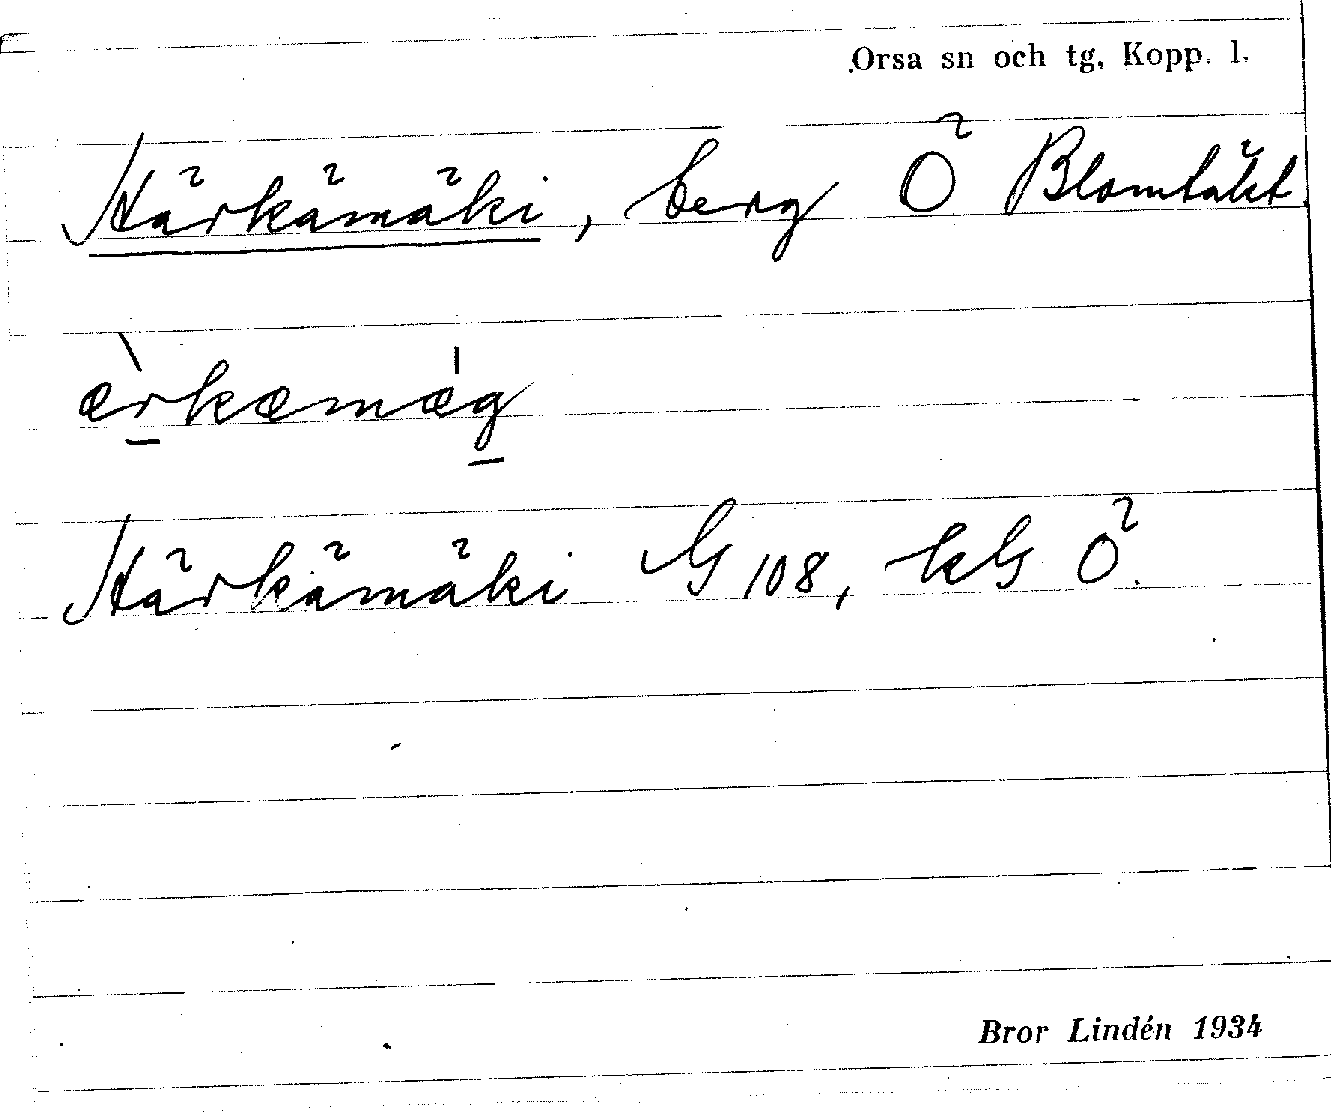 Orsa sn och tg, Kopp. l.
Härkämäki, berg Ö Blomtäkt.
æ̀rkæmæ̍g
Härkämäki G 108, kG Ö.
Bror Lindén 1934